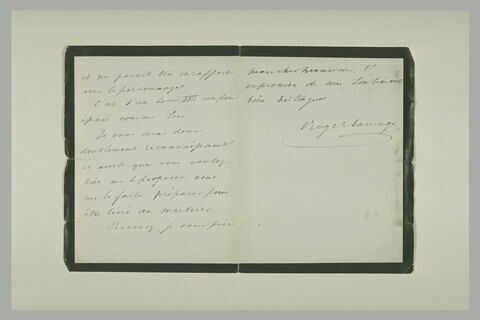 et me parait très en rapport
avec le personnage
C'est d'un Louis XVI un peu
épais comme lui.
Je vous serai donc
doublement reconnaissant
si ainsi que vous voulez
bien me le proposer, vous
me le faites préparer pour
être livré au
Recevez, je vous prie
mon cher Monsieur, l'
expression de mes sentiments
bien distingués
Roger Sauvage